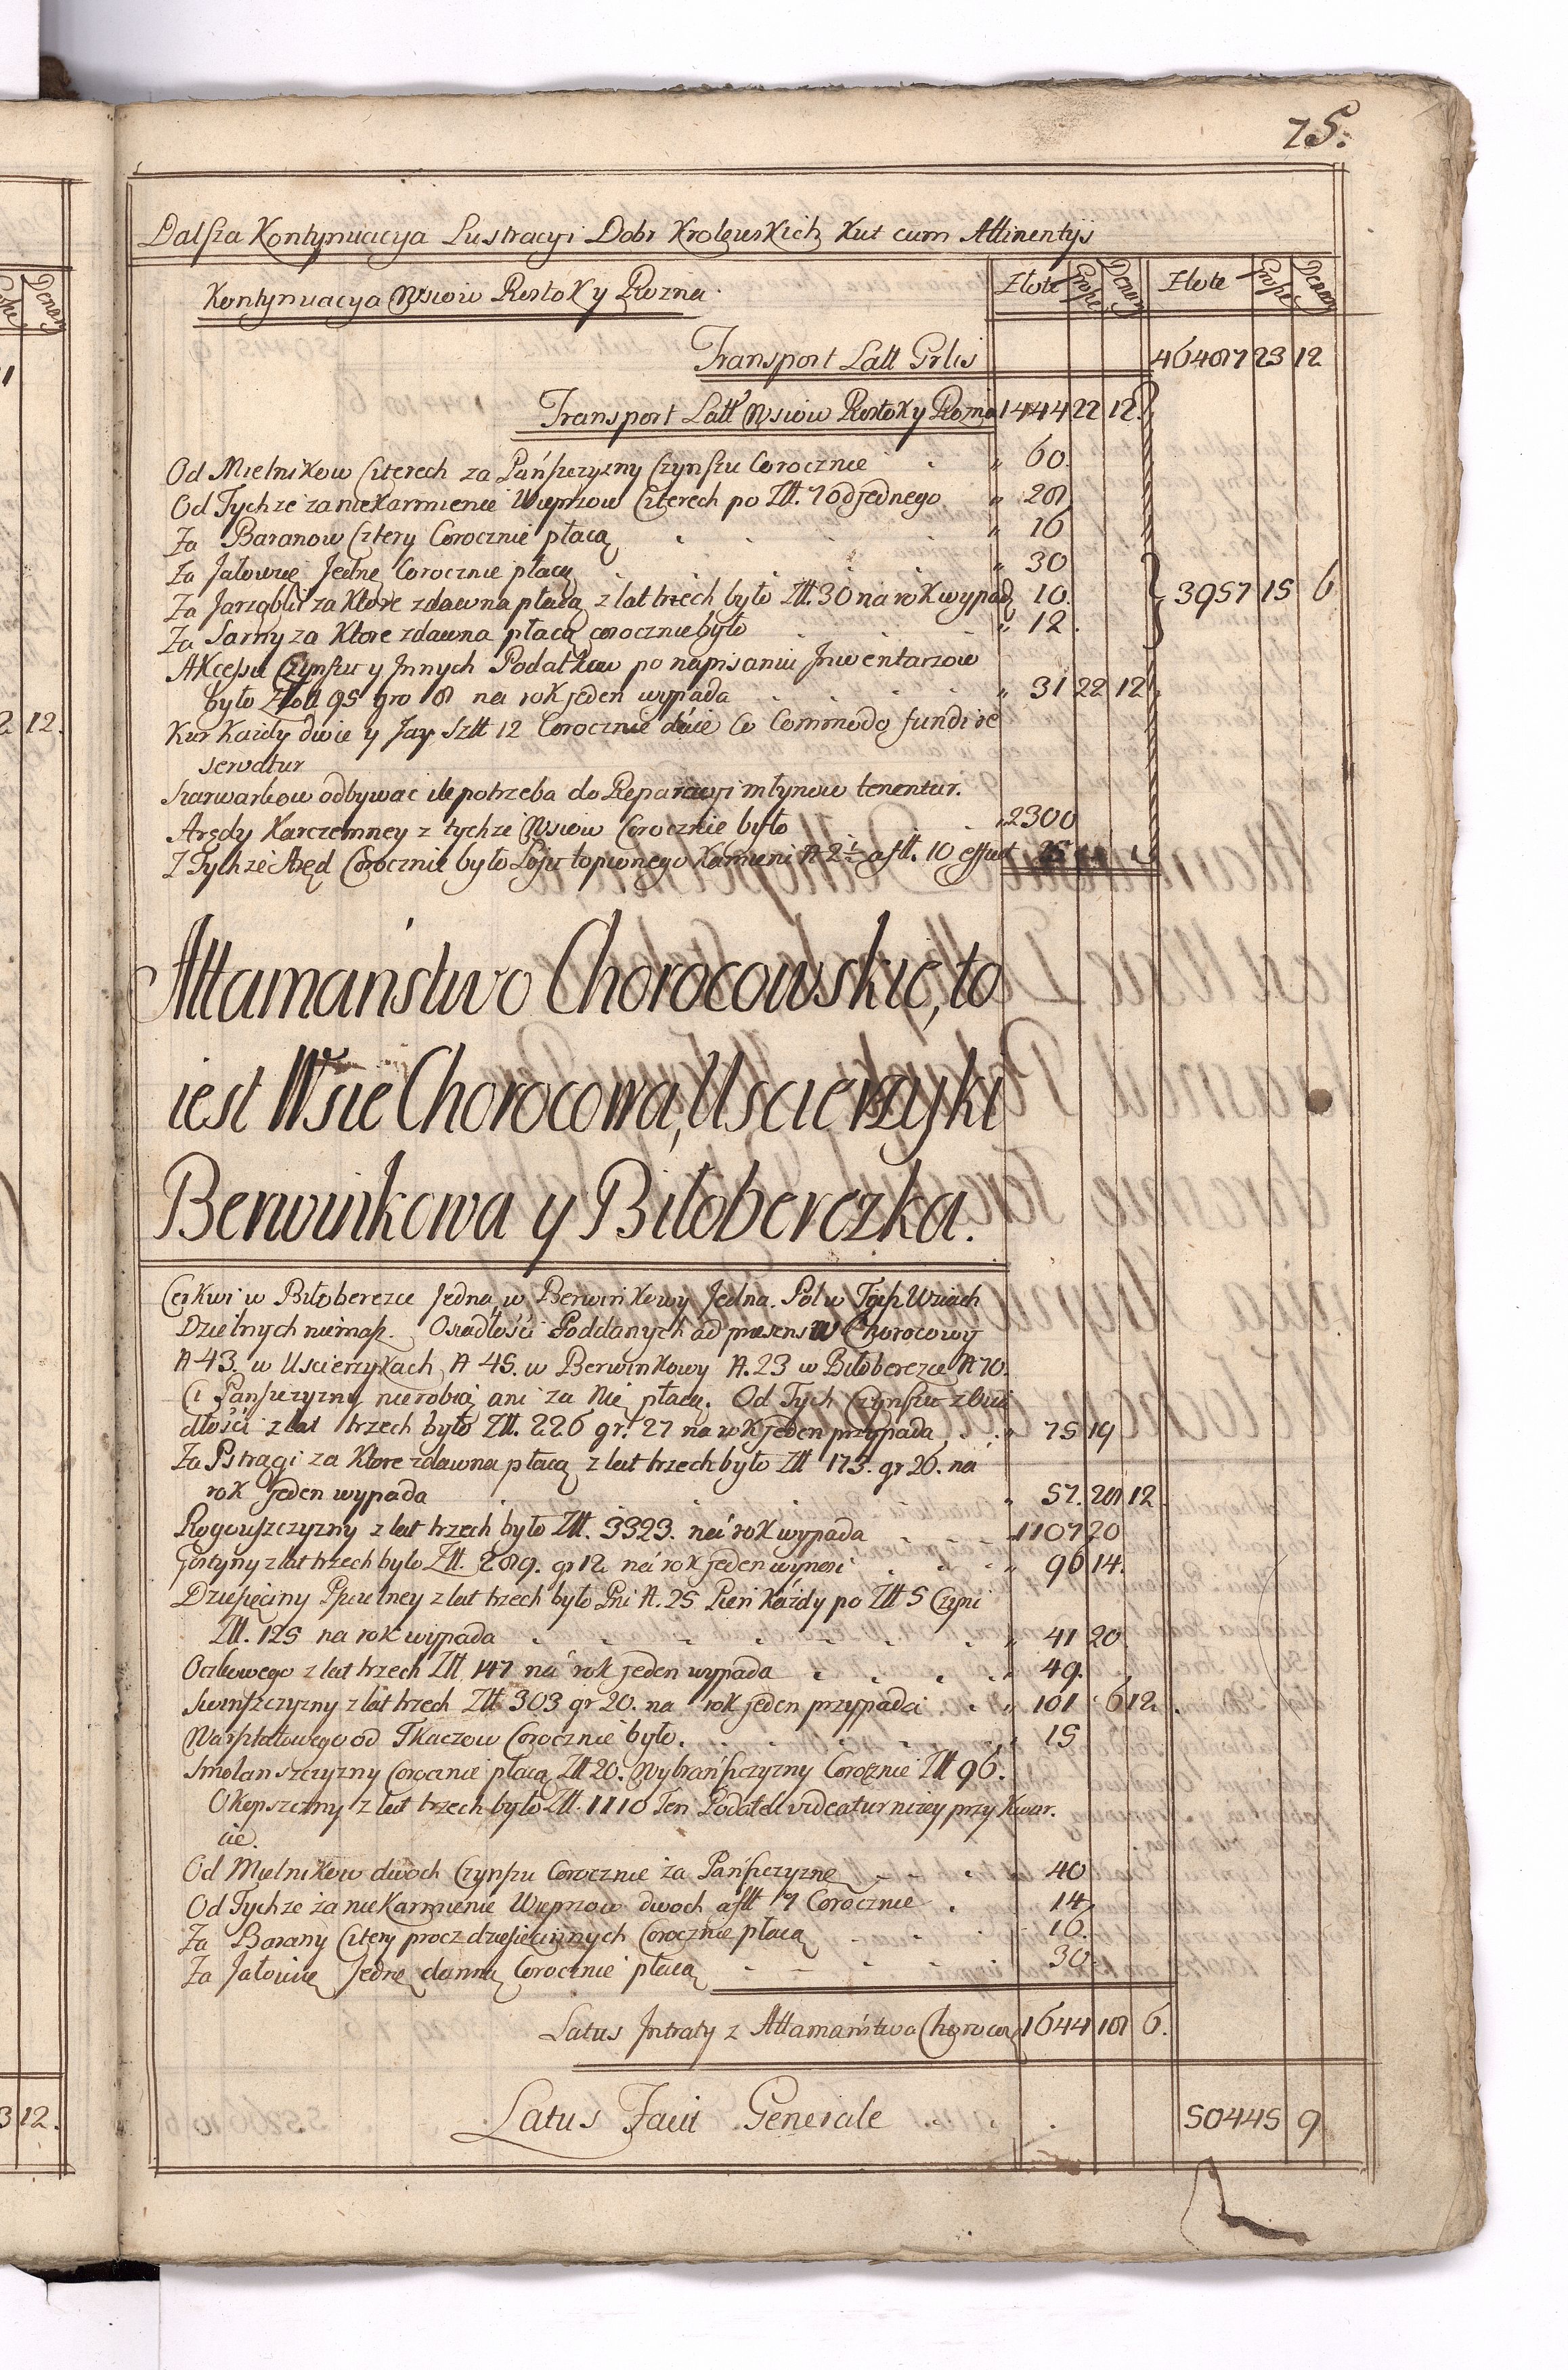 75.
Dalsza Kontynuacya Lustracyi Dobr Krolewskich Kut cum Attinentys
Kontynuacya Wsiow Rostok y Rozna. Złote Grosze Denary Złote Grosze Denary
Transport Latt Grlis 46487 23 12
Transport Latt Wsiow Rostok y Rozna 1444 22 12.
Od Mielnikow Czterech za Pańszczyzny Czynszu Corocznie „ 60.
Od Tychże za niekarmienie Wieprzow Czterech po Złt. 7 od jednego „ 28
Za Baranow Cztery Corocznie płacą „ 16
Za Jałowicę Jednę Corocznie płacą „ 30
Za Jarząbki za Ktore zdawna płacą z lat trzech było Złt. 30 na rok wypad. 10. 3957 15 6
Za Sarny za Ktore zdawna płacą corocznie było „ 12.
Akcessu Czynszu y Jnnych Podatkow po napisaniu Jnwentarzow
było Złott 95 gro 8 na rok jeden wypada „ 31 22 12
Kur Każdy dwie y Jay Sztt 12 Corocznie daie Co Commodo fundi re
servatur
Szarwarkow odbywać ile potrzeba do Reparacyi młynow tenentur.
Arędy Karczemney z tychże Wsiow Corocznie było „ 2300
Z Tychże Aręd Corocznie było Łoju topionego Kamieni N 2½ a flt. 10 efficit 25
Attamaństwo Chorocowskie, to
iest Wsie Chorocowa, Uscierzyki
Berwinkowa y Biłoberezka.
Cerkwi w Biłoberezce Jedna, w Berwinkowy Jedna. Pol w Tych Wsiach
Dzielnych niemasz. Osiadłości Poddanych ad præsens w Chorocowy
N 43. w Uscierzykach N 45. w Berwinkowy N. 23 w Biłoberezce N 70.
Ci Pańszczyzny nie robią ani za Nię płacą. Od Tych Czynszu z Osia
dłości z lat trzech było Złt. 226 gr. 27 na rok jeden przypada „ 75 19
Za Pstrągi za Ktore zdawna płacą z lat trzech było Złt 173. gr 26. na
rok jeden wypada „ 57. 28 12
Rogowszczyzny z lat trzech było Złt. 3323. na rok wypada 1107 20
Gostyny z lat trzech było Złt. 289. gr 12 na rok jeden wynosi „ 96 14.
Dziesięciny Pszczelney z lat trzech było Pni N. 25 Pień Każdy po Złt 5 Czyni
Złt. 125 na rok wypada „ 41 20
Oczkowego z lat trzech Złt 147 na rok jeden wypada „ 49.
Swinszczyzny z lat trzech Złt 303 gr 20. na rok jeden przypada „ 101 6 12
Warsztatowego od Tkaczow Corocznie było. „ 15
Smolanszczyzny Corocznie płacą Złt 20. Wybrańszczyzny Corocznie Złt 96.
Okopszczyzny z lat trzech było Złt. 1110 Ten Podatek videatur niżey przy Kwar.
cie.
Od Mielnikow dwoch Czynszu Corocznie za Pańszczyznę „ 40
Od Tychże za niekarmienie Wieprzow dwoch a flt 7 Corocznie 14
Za Barany Cztery procz dziesięcinnych Corocznie płacą 16.
Za Jałowicę Jednę danną Corocznie płacą 30
Latus Jntraty z Attamaństwa Chorocow. 1644 18 6.
Latus Facit Generale 50445 9